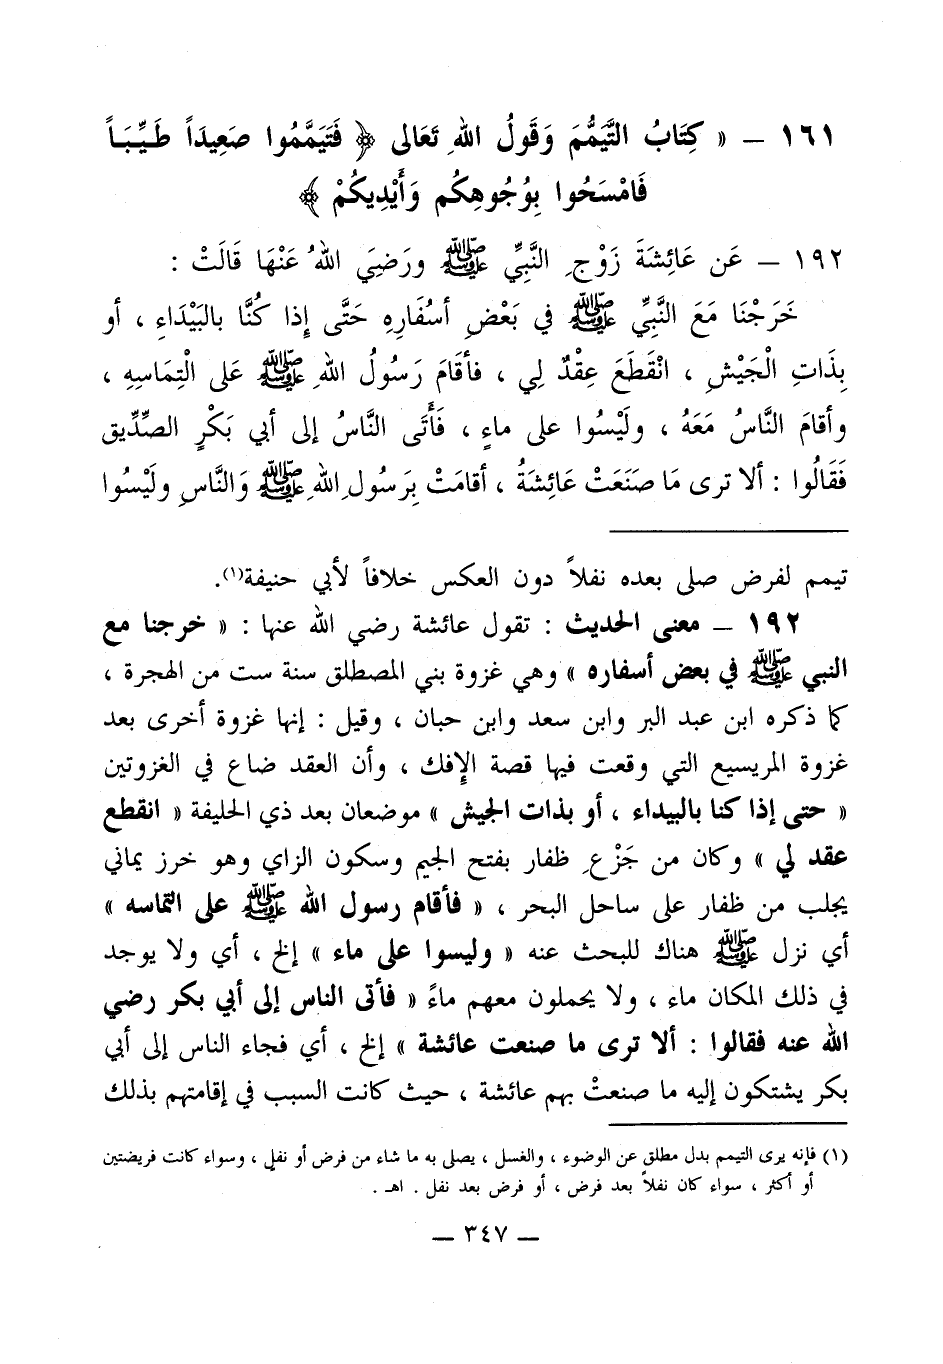 ١٦١ – « كِتَابُ التَّيَمُّمَ وَقَولُ اللهِ تَعَالى ﴿ فَتَيَمَّمُوا صَعِيدَاً طَـيِّـبَـاً
فَامْسَحُوا بِوُجُوهِكُم وَأَيْدِيكُمْ ﴾
١٩٢ – عَن عَائِشَةَ زَوْجِ النَّبِيِّ ﷺ ورَضِيَ اللهُ عَنْهَا قَالَتْ :
خَرَجْنَا مَعَ النَّبِيِّ ﷺ في بَعْضِ أسْفَارِهِ حَتَّى إِذا كُنَّا بالبَيْدَاءِ ، أو
بِذَاتِ الْجَيْشِ ، انْقَطَعَ عِقْدٌ لِي ، فأقَامَ رَسُولُ اللهِ ﷺ عَلى الْتِمَاسِهِ ،
وأقامَ النَّاسُ مَعَهُ ، ولَيْسُوا على ماءٍ ، فَأَتَى النَّاسُ إلى أبي بَكْرٍ الصِّدِّيق
فَقَالُوا : ألا ترى مَا صَنَعَتْ عَائِشَةُ ، أقامَتْ بِرَسُولِ اللهِ ﷺ وَالنَّاسِ ولَيْسُوا
تيمم لفرض صلى بعده نفلاً دون العكس خلافاً لأبي حنيفة(١).
١٩٢ – معنى الحديث : تقول عائشة رضي الله عنها : « خرجنا مع
النبي ﷺ في بعض أسفاره » وهي غزوة بني المصطلق سنة ست من الهجرة ،
كما ذكره ابن عبد البر وابن سعد وابن حبان ، وقيل : إنها غزوة أخرى بعد
غزوة المريسيع التي وقعت فيها قصة الإفك ، وأن العقد ضاع في الغزوتين
« حتى إذا كنا بالبيداء ، أو بذات الجيش » موضعان بعد ذي الحليفة « انقطع
عقد لي » وكان من جَزْعِ ظفار بفتح الجيم وسكون الزاي وهو خرز يماني
يجلب من ظفار على ساحل البحر ، « فأقام رسول الله ﷺ على التماسه »
أي نزل ﷺ هناك للبحث عنه « وليسوا على ماء » إلخ ، أي ولا يوجد
في ذلك المكان ماء ، ولا يحملون معهم ماءً « فأتى الناس إلى أبي بكر رضي
الله عنه فقالوا : ألا ترى ما صنعت عائشة » إلخ ، أي فجاء الناس إلى أبي
بكر يشتكون إليه ما صنعتْ بهم عائشة ، حيث كانت السبب في إقامتهم بذلك
(١) فإنه يرى التيمم بدل مطلق عن الوضوء ، والغسل ، يصلي به ما شاء من فرض أو نفل ، وسواء كانت فريضتين
أو أكثر ، سواء كان نفلاً بعد فرض ، أو فرض بعد نفل . اهـ .
– ٣٤٧ –